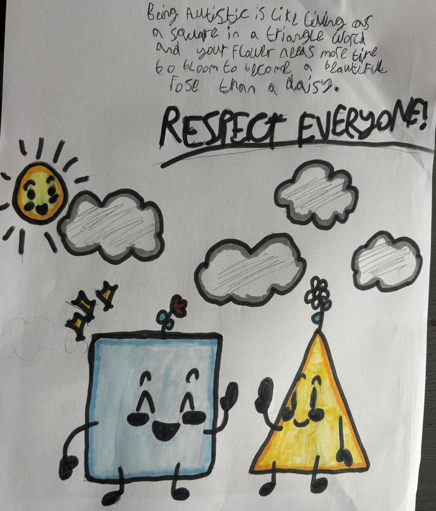 Being Autistic is like living as
a square in a triangle world
and your flower needs more time
to bloom to become a beautiful
rose than a daisy.
RESPECT EVERYONE!